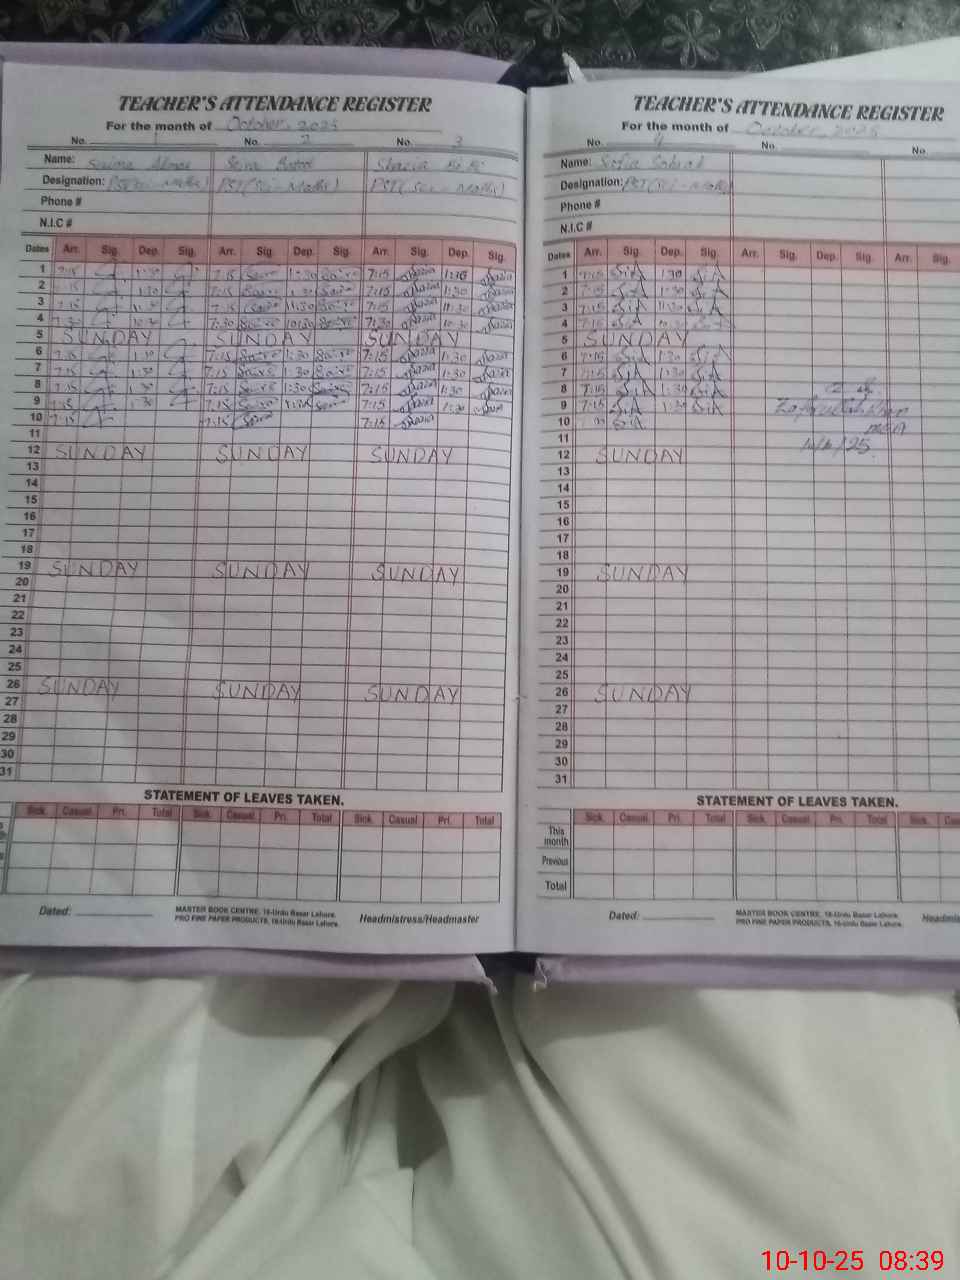 TEACHER'S ATTENDANCE REGISTER
For the month of October, 2025
No. 1 No. 2 No. 3
Name: Saima Shazia Bi Bi
Designation: PST(Sci-Maths) PST(Sci-Maths) PST(Sci-Maths)
Phone #
N.I.C #
Dates Arr. Sig. Dep. Sig. Arr. Sig. Dep. Sig. Arr. Sig. Dep. Sig.
1 7:15 1:30 7:15 1:30 7:15 Shazia 1:30 Shazia
2 7:15 1:30 7:15 1:30 7:15 Shazia 1:30 Shazia
3 7:15 11:30 7:15 11:30 7:15 Shazia 11:30 Shazia
4 7:30 10:30 7:30 10:30 7:30 Shazia 10:30 Shazia
5 SUNDAY SUNDAY SUNDAY
6 7:15 1:30 7:15 1:30 7:15 Shazia 1:30 Shazia
7 7:15 1:30 7:15 1:30 7:15 Shazia 1:30 Shazia
8 7:15 1:30 7:15 1:30 7:15 Shazia 1:30 Shazia
9 7:15 1:30 7:15 1:30 7:15 Shazia 1:30
10 7:15 7:15 7:15 Shazia
11
12 SUNDAY SUNDAY SUNDAY
13
14
15
16
17
18
19 SUNDAY SUNDAY SUNDAY
20
21
22
23
24
25
26 SUNDAY SUNDAY SUNDAY
27
28
29
30
31
STATEMENT OF LEAVES TAKEN.
Sick. Casual Pri. Total Sick. Casual Pri. Total Sick. Casual Pri. Total
Dated:
MASTER BOOK CENTRE, 16-Urdu Bazar Lahore.
PRO FINE PAPER PRODUCTS, 16-Urdu Bazar Lahore.
Headmistress/Headmaster
TEACHER'S ATTENDANCE REGISTER
For the month of October 2025
No. 4 No. No.
Name: Sofia
Designation: PST(Sci-Maths)
Phone #
N.I.C #
Dates Arr. Sig. Dep. Sig. Arr. Sig. Dep. Sig. Arr. Sig.
1 7:15 SiA 1:30 SiA
2 7:15 SiA 1:30 SiA
3 7:15 SiA 11:30 SiA
4 7:15 SiA 10:30 SiA
5 SUNDAY
6 7:15 SiA 1:30 SiA
7 7:15 SiA 1:30 SiA
8 7:15 SiA 1:30 SiA
9 7:15 SiA 1:30 SiA
10 SiA
11
12 SUNDAY
13
14
15
16
17
18
19 SUNDAY
20
21
22
23
24
25
26 SUNDAY
27
28
29
30
31
STATEMENT OF LEAVES TAKEN.
Sick. Casual Pri. Total Sick. Casual Pri. Total Sick.
This month
Previous
Total
Dated:
MASTER BOOK CENTRE, 16-Urdu Bazar Lahore.
PRO FINE PAPER PRODUCTS, 16-Urdu Bazar Lahore.
10-10-25 08:39